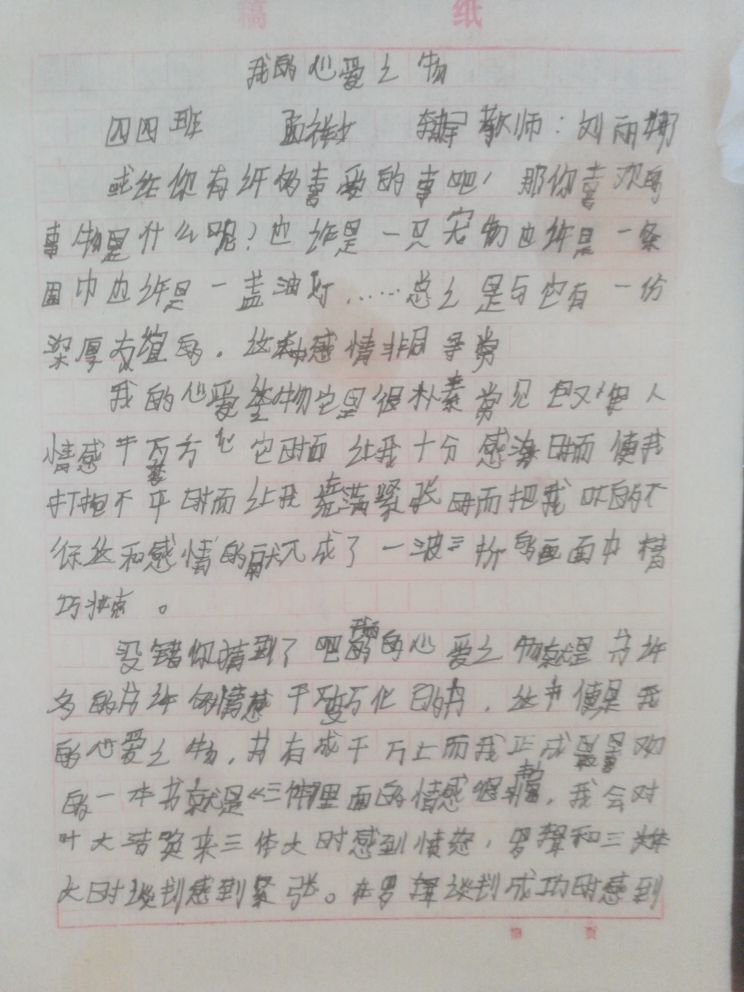 稿 纸
我的心爱之物
四四班 孟 辅导教师：刘丽娜
或许你有许的喜爱的事吧！那你喜欢的
事物是什么呢？也许是一只宠物也许是一条
围巾也许是一盏油灯……总之是与它有一份
深厚友谊的。这种感情非同寻常
我的心爱之物它是很朴素常见但又使人
情感千变万化它时而让我十分感动时而使我
打抱不平时而让我充满紧张时而把我吓的不
这和感情的成了一波三折的画面中精
巧
没错你猜到了吧我的心爱之物就是书许
多的书许的情感千变万化的书，这书便是我
的心爱之物，书有成千万上而我正成最喜欢
的一本书就是《三体里面的情感很丰富，我会对
叶大洁来三体大时感到愤怒，罗辑和三体
大时谈判感到紧张。在罗辑谈判成功时感到
第 页